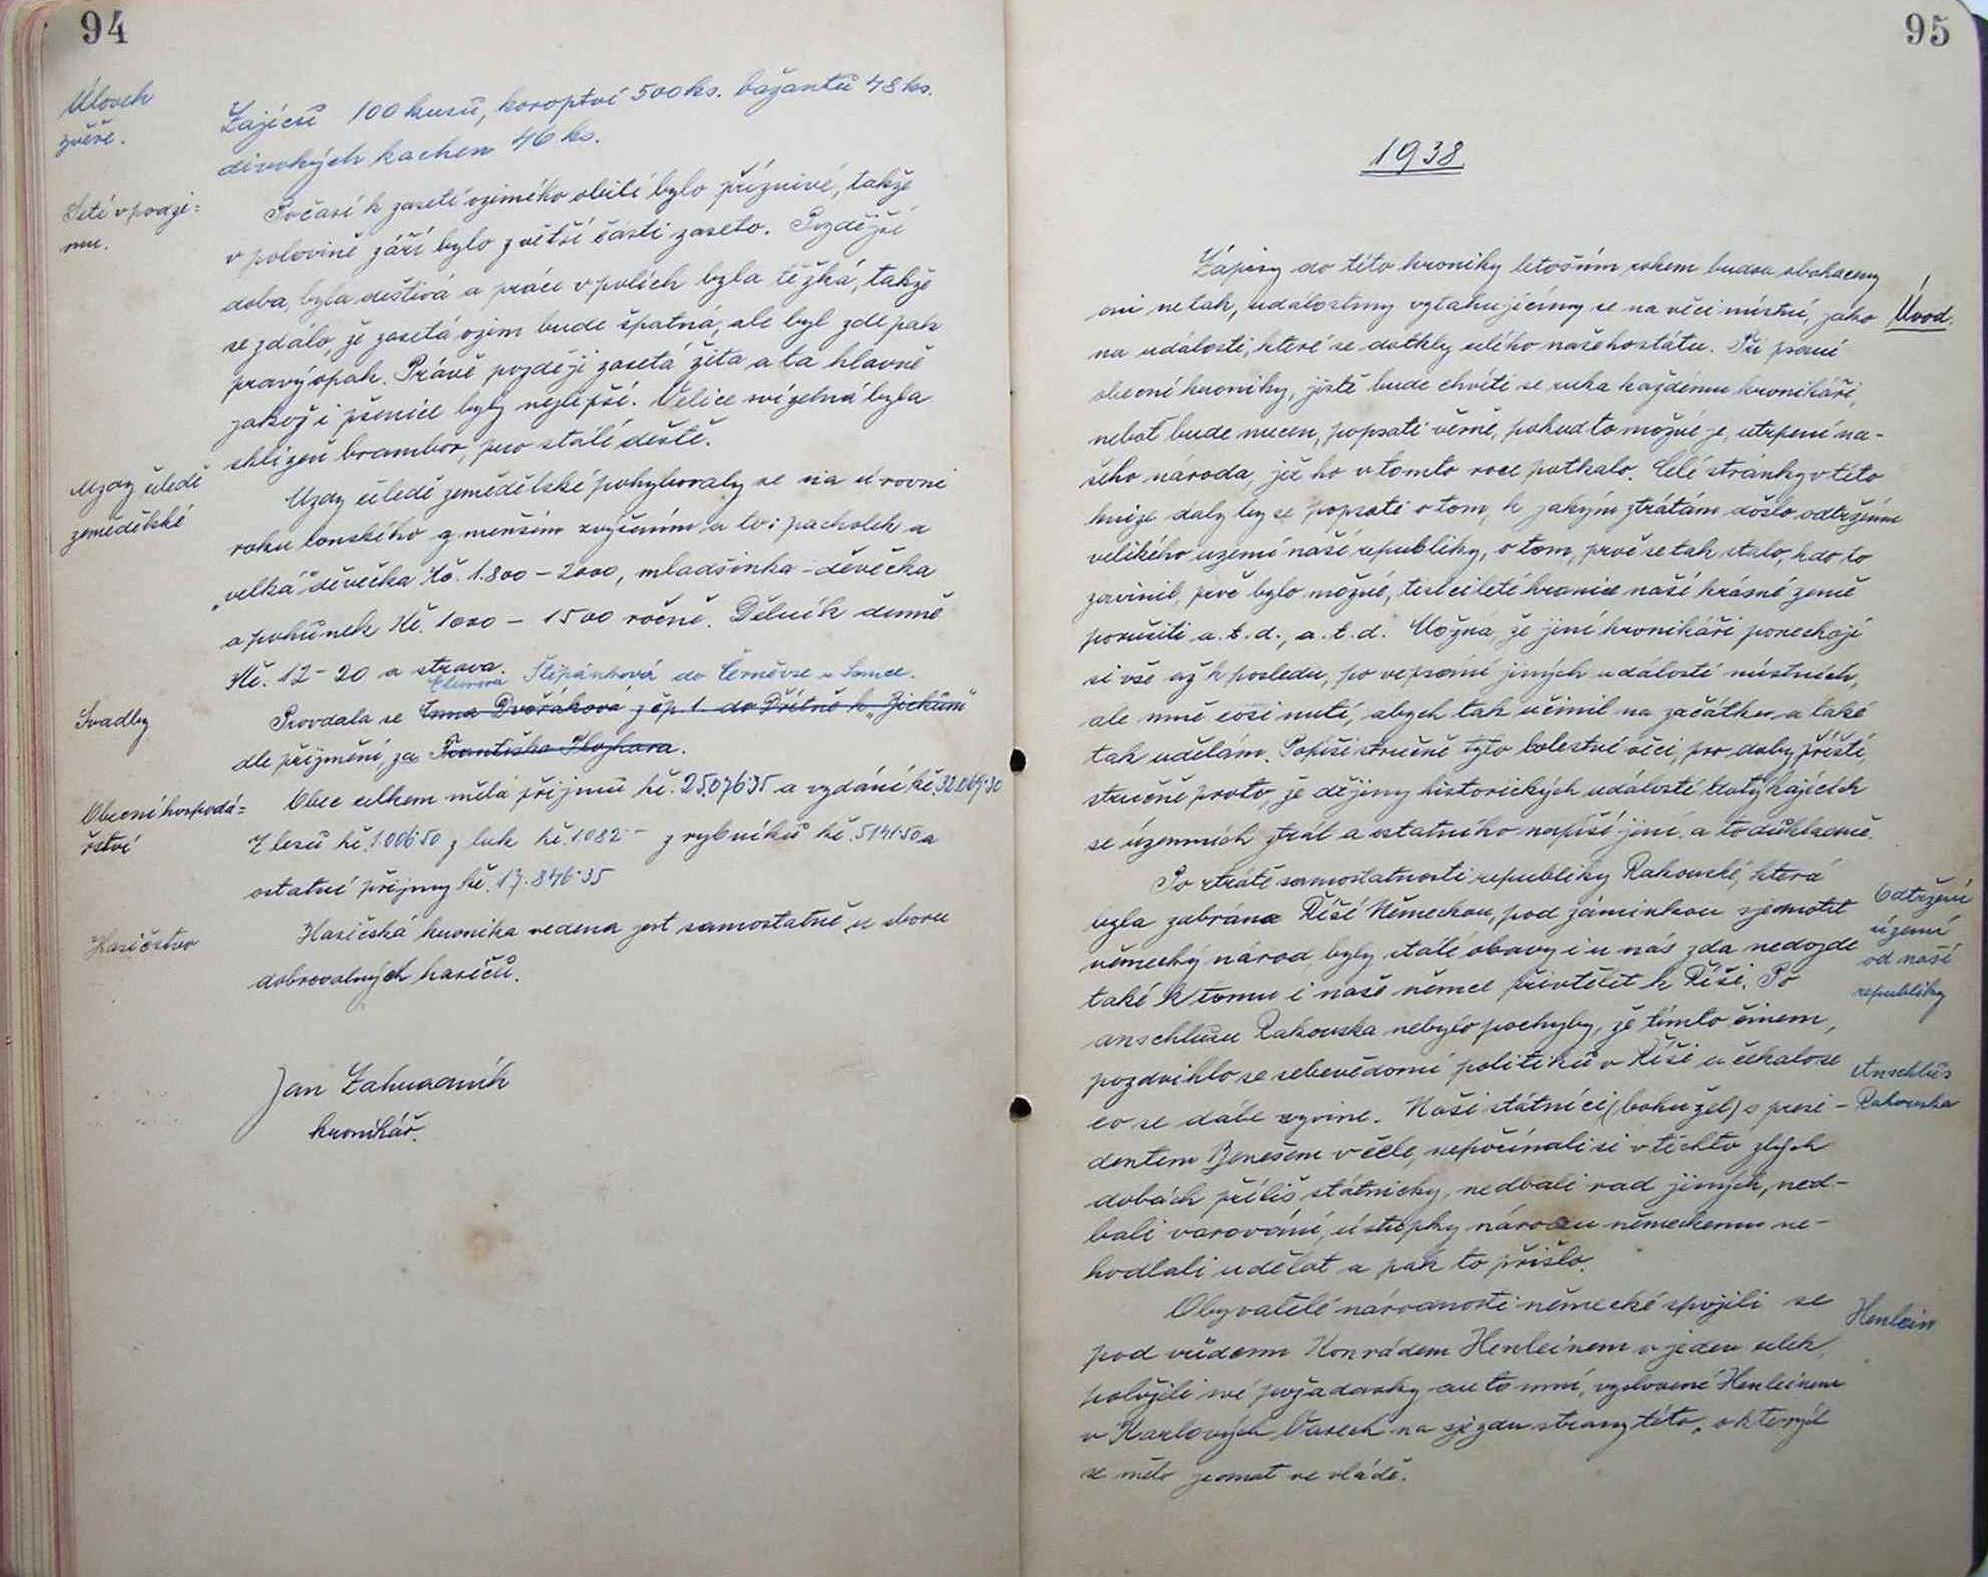 94
Úlovek
zvěře.
Zajíců 100 kusů, koroptví 500 ks. bažantů 48 ks.
divokých kachen 46 ks.
Setí v podzi-
mu.
Počasí k zasetí ozimého obilí bylo příznivé, takže
v polovině září bylo z větší části zaseto. Pozdější
doba, byla deštivá a práce v polích byla těžká, takže
se zdálo, že zasetá ozim bude špatná, ale byl zde pak
pravý opak. Právě později zasetá žita a ta hlavně
jakož i pšenice byly nejlepší. Velice svízelná byla
sklizeň brambor, pro stálé deště.
Mzdy čeledi
zemědělské
Mzdy čeledi zemědělské pohybovaly se na úrovni
roku lonského z menším zvýšením a to: pacholek a
„velká" děvečka Kč. 1.800 – 2000, mladšinka - děvečka
a pohůnek Kč. 1000 – 1500 ročně. Dělník denně
Kč. 12 – 20 a strava.
Štěpánková do Černěvse u Lomce.
Svadby
Provdala se Anna Dvořáková z čp. 1. do Pištně k „Zichům"
dle příjmění, za Františka Plojhara.
Obecní hospodá-
řství
Obec celkem měla příjmů kč. 25.076·35 a vydání kč. 32.069·30
Z lesů kč. 1.006·50 z luk kč. 1082·– z rybníků kč. 5141·50 a
ostatní příjmy kč. 17.846·35
Hasičstvo
Hasičská kronika vedena jest samostatně u sboru
dobrovolných hasičů.
Jan Zahradník
kronikář.
95
1938
Úvod.
Zápisy do této kroniky letošním rokem budou obohaceny
ani ne tak, událostmy vztahujícímy se na věci místní, jako
na události, které se dotkly celého našeho státu. Při psaní
obecní kroniky, jistě bude chvíti se ruka každému kronikáři,
neboť bude nucen, popsati věrně, pokud to možné je, utrpení na-
šeho národa, jež ho v tomto roce potkalo. Celé stránky v této
knize daly by se popsati o tom, k jakým ztrátám došlo odtržením
velikého uzemí naší republiky, o tom, proč se tak stalo, kdo to
zavinil, proč bylo možné, tisícileté hranice naší krásné země
porušiti a. t. d., a. t. d. Možná, že jiní kronikáři ponechají
si vše až k posledu, po vepsání jiných událostí místních,
ale mně cosi nutí, abych tak učinil na začátku, a také
tak udělám. Popíši stručně tyto bolestné věci, pro doby příští,
stručně proto, že dějiny historických událostí tkatýkajících
se územních ztrát a ostatního napíší jiní, a to důkladně.
Odtržení
území
od naší
republiky
Po ztrátě samostatnosti republiky Rakouské, která
byla zabrána Říší Německou, pod záminkou sjednotit
německý národ, byly stálé obavy i u nás zda nedojde
také k tomu i naše němce přivtělit k Říši. Po
anschlusu Rakouska nebylo pochyby, že tímto činem,
pozdvihlo se sebevědomí politiků v Říši a čekalo se
Anschlus
Rakouska
co se dále vyvine. Naši státníci (bohužel) s presi-
dentem Benešem v čele, nepočínali si v těchto zlých
dobách příliš státnicky, nedbali rad jiných, ned-
bali varování, ústupky národu německému ne-
hodlali udělat a pak to přišlo.
Henlein
Obyvatelé národnosti německé spojili se
pod vůdcem Konrádem Henleinem v jeden celek
položili své požadavky autonní, vyslovené Henleinem
v Karlových Varech na sjezdu strany této, o kterých
se mělo jednat ve vládě.